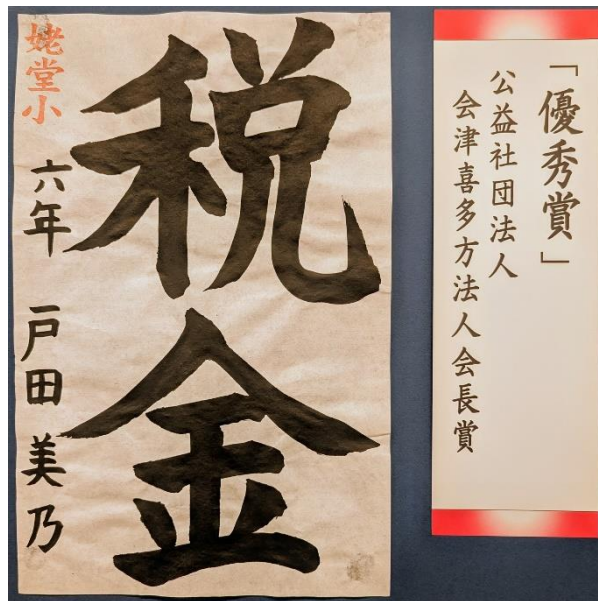 「優秀賞」
公益社団法人
会津喜多方法人会長賞
税金
姥堂小
六年 戸田美乃